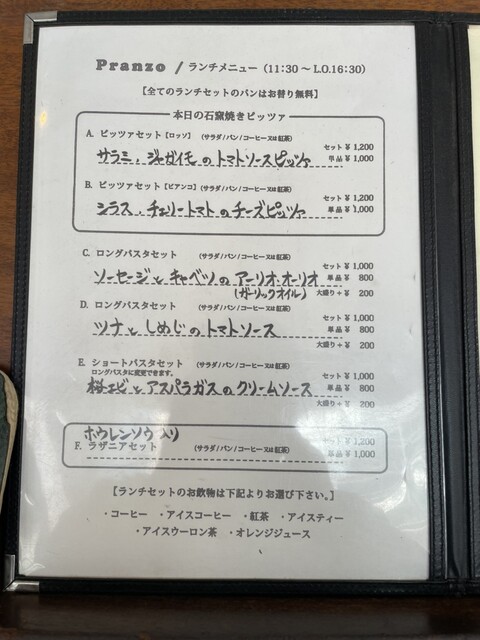 Pranzo / ランチメニュー (11:30 ～ L.O.16:30)
【全てのランチセットのパンはお替り無料】
本日の石窯焼きピッツァ
A. ピッツァセット【ロッソ】 (サラダ/パン/コーヒー又は紅茶) セット ¥ 1,200
サラミ、ジャガイモのトマトソースピッツァ 単品 ¥ 1,000
B. ピッツァセット【ビアンコ】 (サラダ/パン/コーヒー又は紅茶) セット ¥ 1,200
シラス、チェリートマトのチーズピッツァ 単品 ¥ 1,000
C. ロングパスタセット (サラダ/パン/コーヒー又は紅茶) セット ¥ 1,000
ソーセージとキャベツのアーリオ・オーリオ 単品 ¥ 800
(ガーリックオイル) 大盛り + ¥ 200
D. ロングパスタセット (サラダ/パン/コーヒー又は紅茶) セット ¥ 1,000
ツナとしめじのトマトソース 単品 ¥ 800
大盛り + ¥ 200
E. ショートパスタセット (サラダ/パン/コーヒー又は紅茶)
ロングパスタに変更できます。 セット ¥ 1,000
桜エビとアスパラガスのクリームソース 単品 ¥ 800
大盛り + ¥ 200
ホウレンソウ入り
F. ラザニアセット (サラダ/パン/コーヒー又は紅茶) セット ¥ 1,200
単品 ¥ 1,000
【ランチセットのお飲物は下記よりお選び下さい。】
・コーヒー ・アイスコーヒー ・紅茶 ・アイスティー
・アイスウーロン茶 ・オレンジジュース